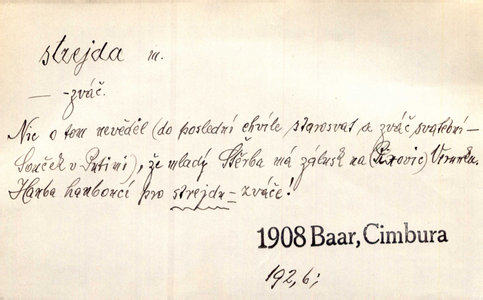 strejda m.
— -zváč.
Nic o tom nevěděl (do poslední chvíle starosvat a zváč svatební -
Souček v Putimi), že mladý Štěrba má zálusk na (Pixovic) Verunku.
Hanba hanboucí pro strejdu-zváče!
1908 Baar, Cimbura
192,6;